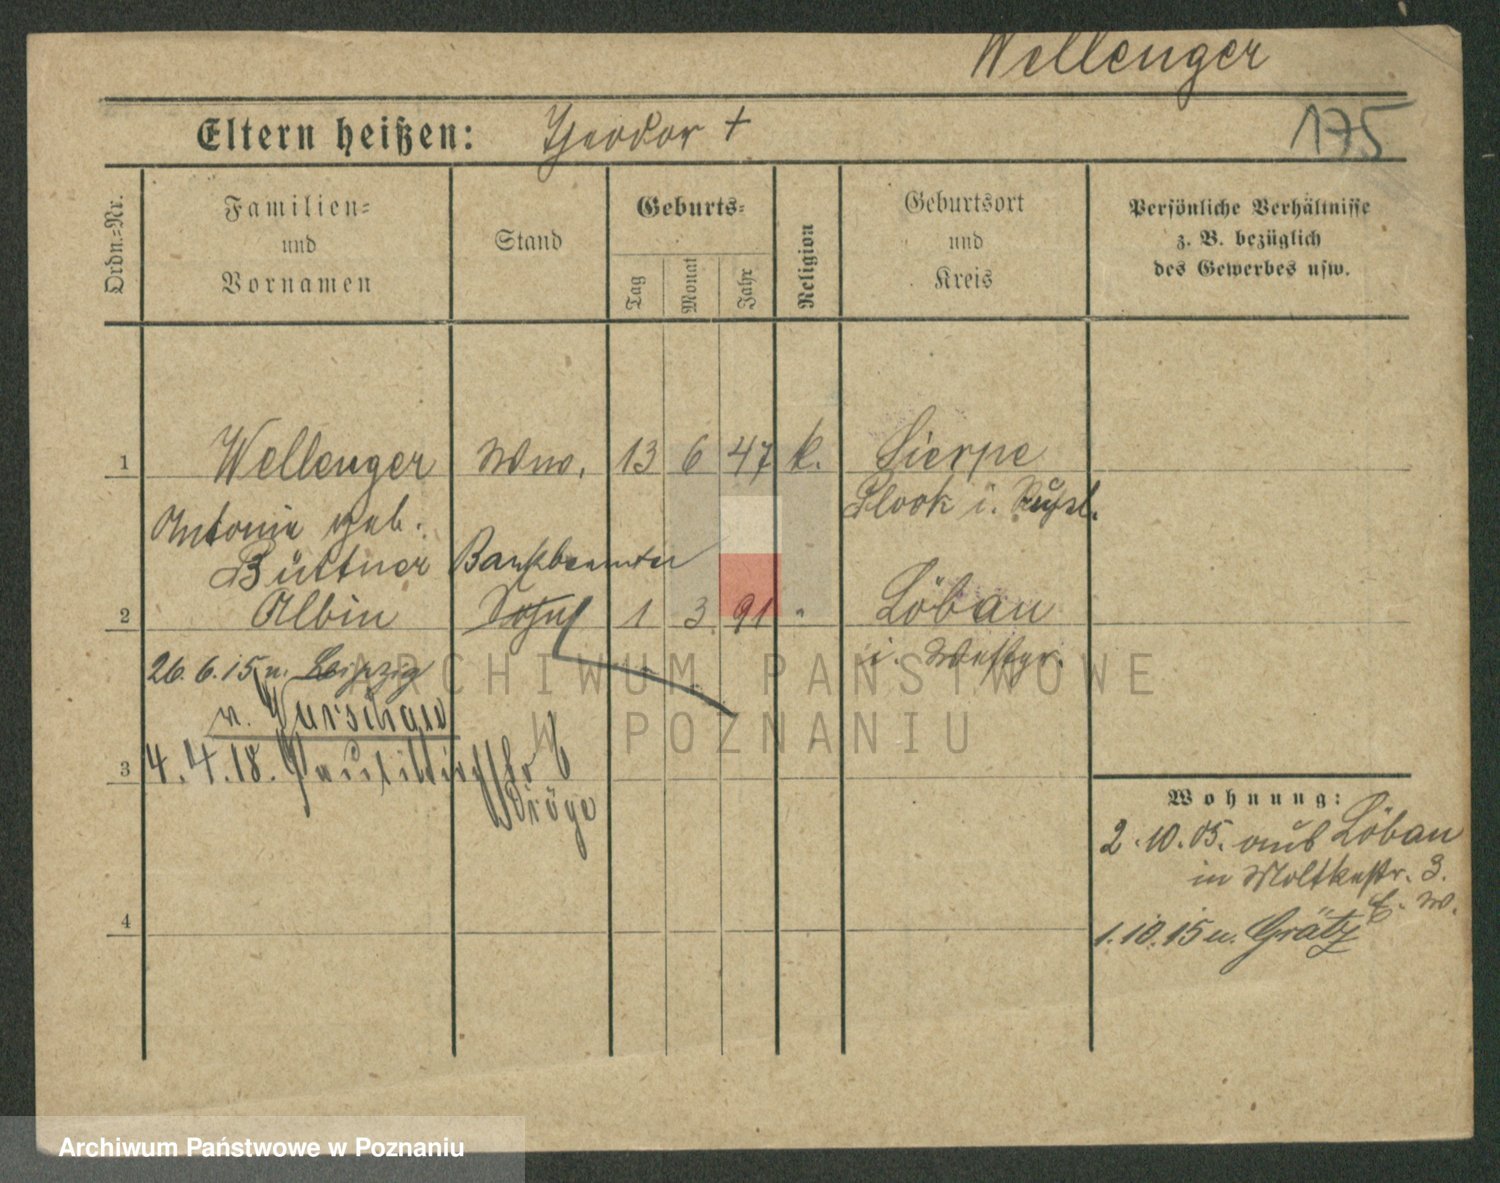 Wellenger
175
Eltern heißen: Theodor +
Ordn.-Nr.
Familien-
und
Vornamen
Stand
Geburts-
Tag
Monat
Jahr
Religion
Geburtsort
und
Kreis
Persönliche Verhältnisse
z. B. bezüglich
des Gewerbes usw.
1 Wellenger Wwe. 13 6 47 k. Sierpe
Plock i. Rußl.
Antonie geb.
Büttner Bankbeamter
2 Albin Sohn 1 3 91 " Löbau
i. Westpr.
26.6.15 n. Leipzig
n. Warschau
4.4.18.
3
Dröge
Wohnung:
2.10.05. aus Löbau
in Moltkestr. 3.
E. W.
1.10.15 n. Grätz
4
ARCHIWUM PAŃSTWOWE
W POZNANIU
Archiwum Państwowe w Poznaniu